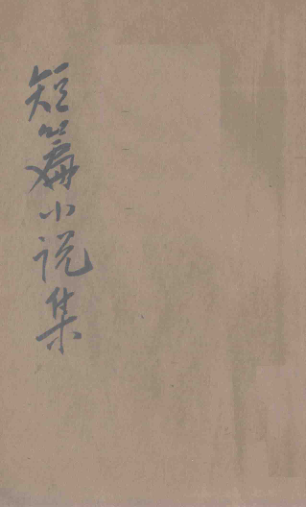 短篇小说集